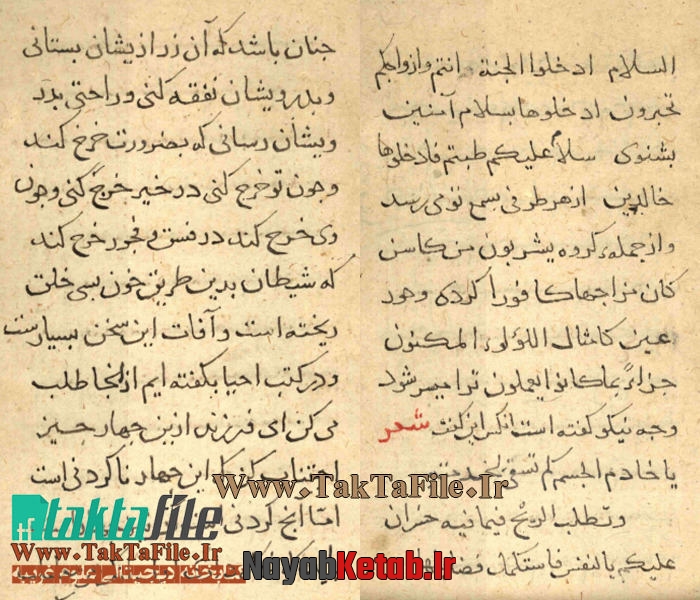 السلام ادخلوا الجنة انتم وازواجكم
تحبرون ادخلوها بسلام آمنین
بشنوی سلام علیکم طبتم فادخلوها
خالدین از هر طرفی بسمع تو می رسد
واز جمله کروه یشربون من کاس
کان مزاجها کافورا کردی وحور
عین کامثال اللؤلوء المکنون
جزاءً بما کانوا یعملون ترا میسر شود
وجه نیکو کفته است انکس این کفت شعر
یا خادم الجسم کم تسعی
وتطلب الربح فیما فیه خسران
علیکم بالنفس فاستکمل
جنان باشد که آن زر از یشان بستانی
وبدرویشان نفقه کنی وراحتی بدر
ویشان رسانی که بضرورت خرج کند
وجون تو خرج کنی در خیر خرج کنی وجون
وی خرج کند در فسق وفجور خرج کند
که شیطان بدین طریق خون بسی خلق
ریخته است وآفات این سخن بسیارست
ودر کتب احیا بکفته ایم از انجا طلب
می کن ای فرزند ازین جهار جیز
اجتناب کن که این جهار ناکردنی است
امّا انج کردنی
taktafile
Www.TakTaFile.Ir
Www.TakTaFile.Ir
NayabKetab.Ir